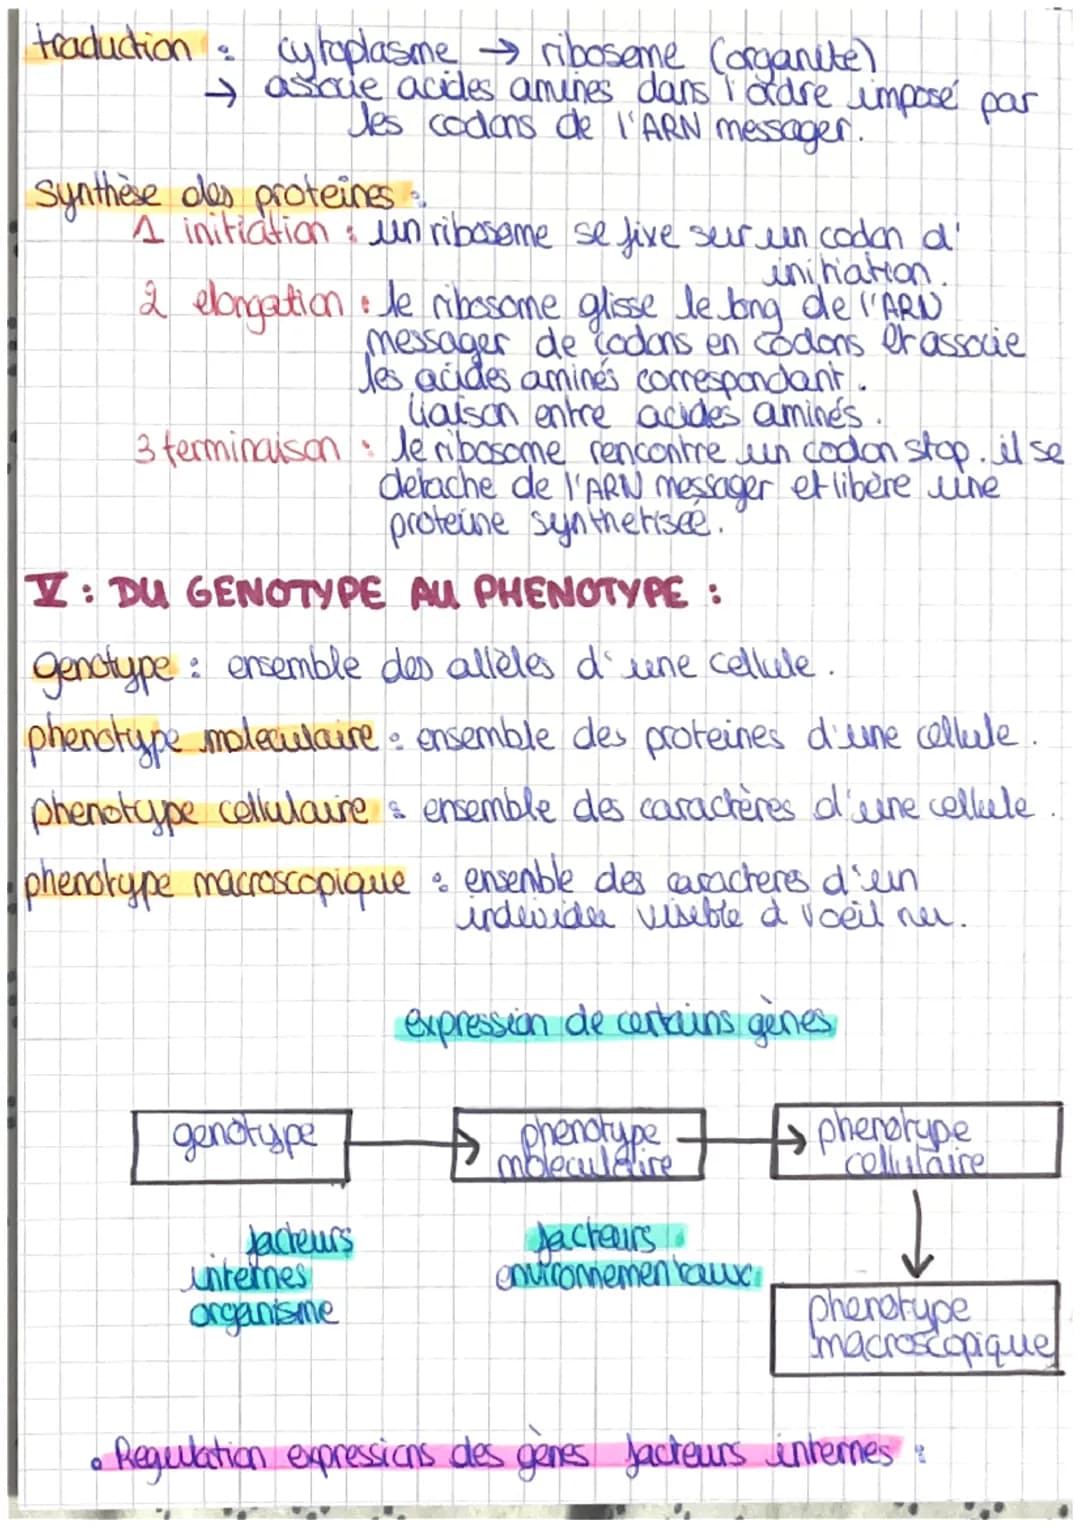 traduction : cytoplasme → ribosome (organite)
→ associe acides aminés dans l'ordre imposé par
les codons de l'ARN messager.
synthèse des proteines :
1 initiation : un ribosome se fixe sur un codon d'
initiation.
2 elongation : le ribosome glisse le long de l'ARN
messager de codons en codons et associe
les acides aminés correspondant.
liaison entre acides aminés.
3 terminaison : le ribosome rencontre un codon stop. il se
detache de l'ARN messager et libère une
proteine synthetisée.
V : DU GENOTYPE AU PHENOTYPE :
genotype : ensemble des allèles d'une cellule.
phenotype moleculaire : ensemble des proteines d'une cellule.
phenotype cellulaire : ensemble des caractères d'une cellule.
phenotype macroscopique : ensenble des caracteres d'un
individu visible à l'oeil nu.
expression de certains gènes
genotype → phenotype → phenotype
moleculaire cellulaire
facteurs facteurs
internes environnementaux
organisme
phenotype
macroscopique
• Regulation expressions des gènes facteurs internes :